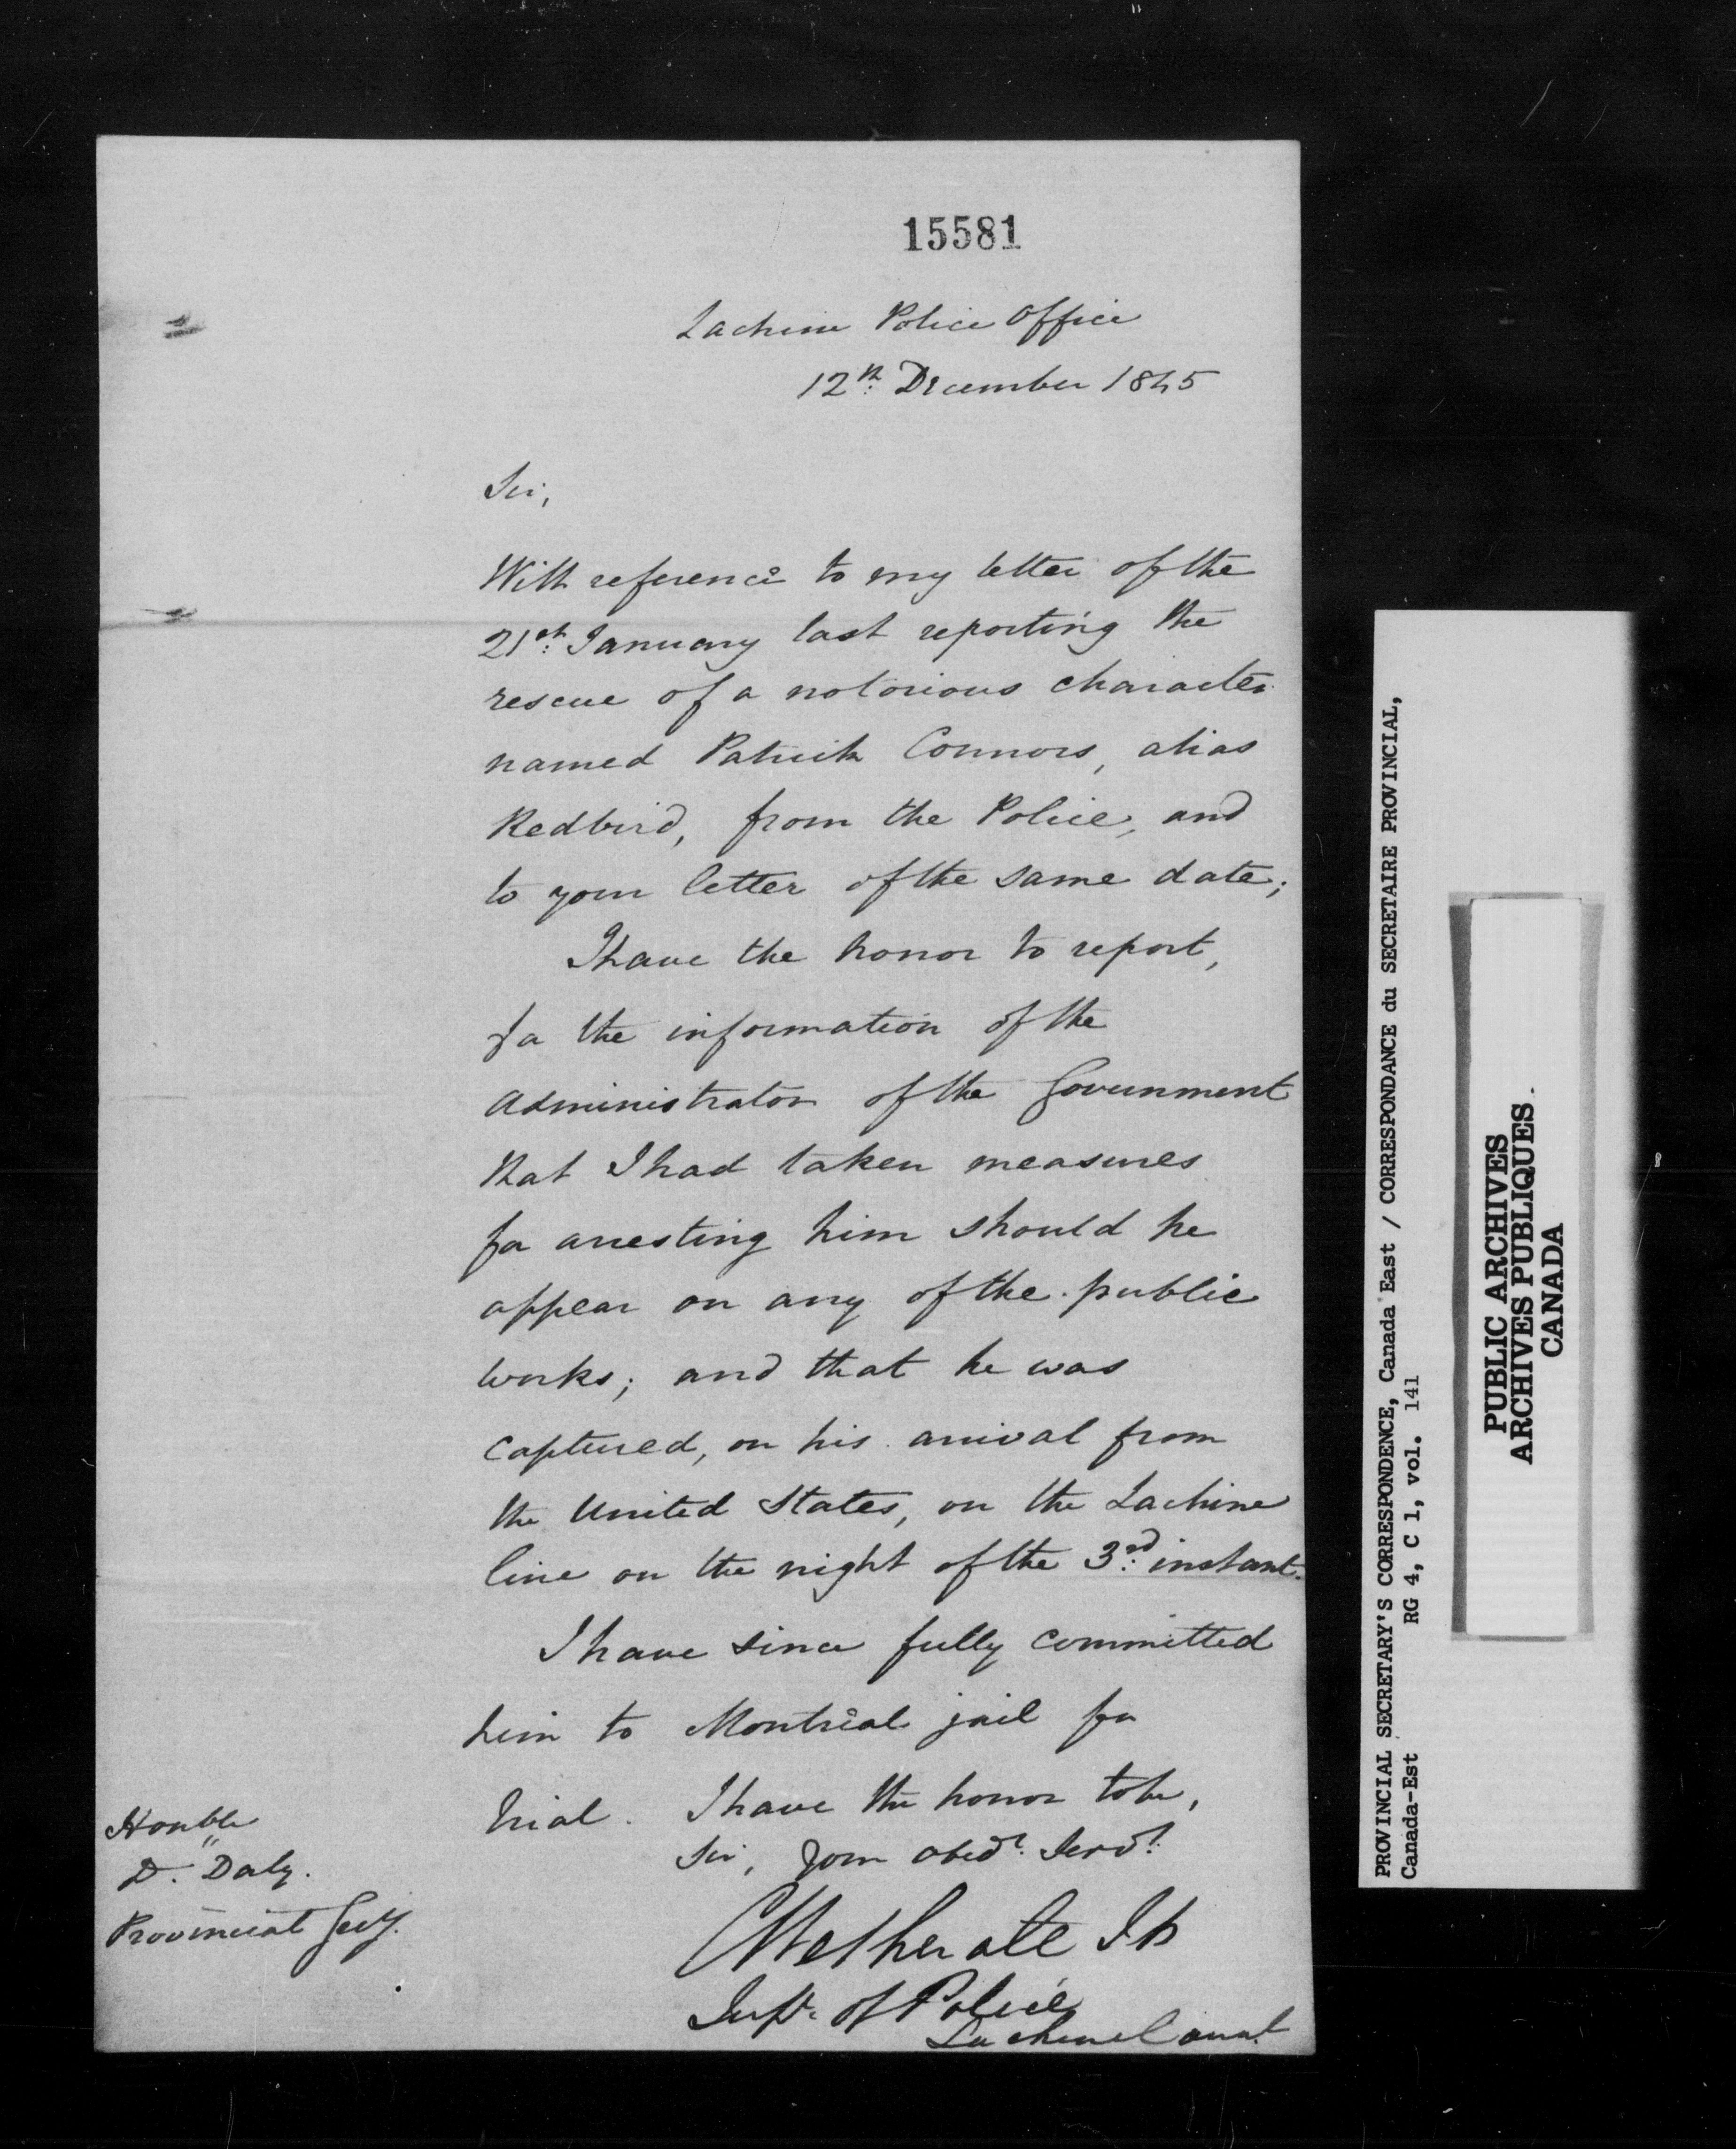 15581
Lachine Police Office
12th. December 1845
Sir,
With reference to my letter of the
21st. January last reporting the
rescue of a notorious character
named Patrick Connors, alias
Redbird, from the Police, and
to your letter of the same date;
I have the honor to report,
for the information of the
Administrator of the Government
that I had taken measures
for arresting him should he
appear on any of the public
works; and that he was
captured, on his arrival from
the United States, on the Lachine
line on the night of the 3rd. instant.
I have since fully committed
him to Montreal jail for
trial. I have the honor to be,
Sir, Your obedt. Servt.
C Wetherall
Supt. of Police
Lachine Canal
Honble
D. Daly.
Provincial Secy.
PROVINCIAL SECRETARY'S CORRESPONDENCE, Canada East / CORRESPONDANCE du SECRETAIRE PROVINCIAL,
Canada-Est RG 4, C 1, vol. 141
PUBLIC ARCHIVES
ARCHIVES PUBLIQUES
CANADA